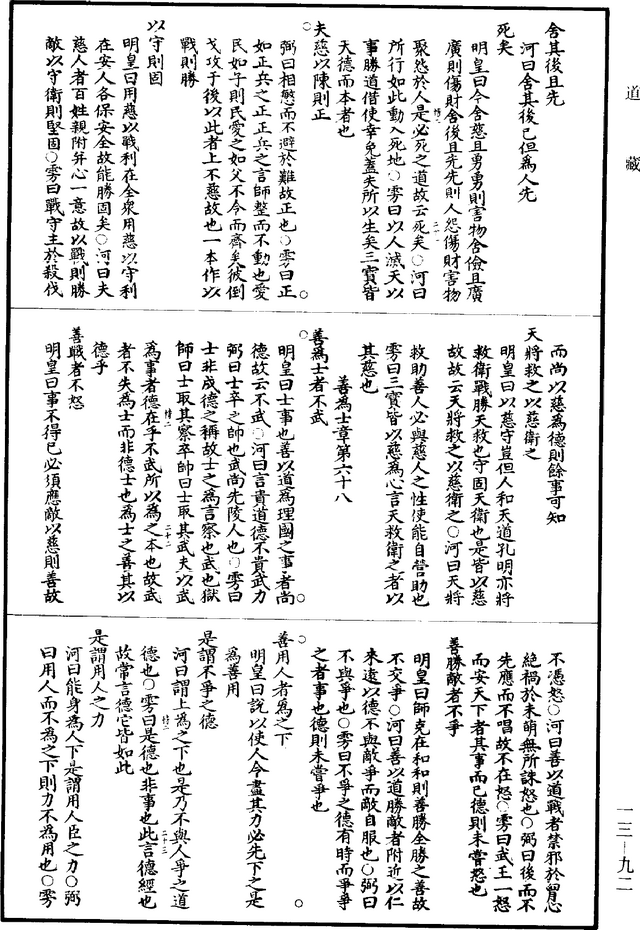 道藏
舍其後且先
河曰舍其後已但為人先
死矣
明皇曰今舍慈且勇勇則害物舍儉且廣
廣則傷財舍後且先先則人怨傷財害物
聚怨於人是必死之道故云死矣○河曰
所行如此動入死地○雱曰以人滅天以
事勝道借使幸免蓋夫所以生矣三寶皆
天德而本者也
夫慈以陳則正
弼曰相慜而不避於難故正也○雱曰正
如正兵之正正兵之言師整而不動也愛
民如子則民愛之如父不令而齊矣彼倒
戈攻于後以此者上不慈故也一本作以
戰則勝
以守則固
明皇曰用慈以戰利在全衆用慈以守利
在安人各保安全故能勝固矣○河曰夫
慈人者百姓親附并心一意故以戰則勝
敵以守衛則堅固○雱曰戰守主於殺伐
而尚以慈為德則餘事可知
天將救之以慈衛之
明皇曰以慈守豈但人和天道孔明亦將
救衛戰勝天救也守固天衛也是皆以慈
故故云天將救之以慈衛之○河曰天將
救助善人必與慈人之性使能自營助也
雱曰三寶皆以慈為心言天救衛之者以
其慈也
善為士章第六十八
善為士者不武
明皇曰士事也善以道為理國之事者尚
德故云不武○河曰言貴道德不貴武力
弼曰士卒之帥也武尚先陵人也○雱曰
士非成德之稱故士之為言察也武也獄
師曰士取其察卒帥曰士取其武夫以武
為事者德在乎不武所以為之本也故武
者不失為士而非德士也為士之善其以
德乎
善戰者不怒
明皇曰事不得已必須應敵以慈則善故
不憑怒○河曰善以道戰者禁邪於胷心
絕禍於未萌無所誅怒也○弼曰後而不
先應而不唱故不在怒○雱曰武王一怒
而安天下者其事而已德則未嘗怒也
善勝敵者不爭
明皇曰師克在和和則善勝全勝之善故
不交爭○河曰善以道勝敵者附近以仁
來遠以德不與敵爭而敵自服也○弼曰
不與爭也○雱曰不爭之德有時而爭爭
之者事也德則未嘗爭也
善用人者為之下
明皇曰說以使人令盡其力必先下之是
為善用
是謂不爭之德
河曰謂上為之下也是乃不與人爭之道
德也○雱曰是德也非事也此言德經也
故常言德它皆如此
是謂用人之力
河曰能身為人下是謂用人臣之力○弼
曰用人而不為之下則力不為用也○雱
一三—九二